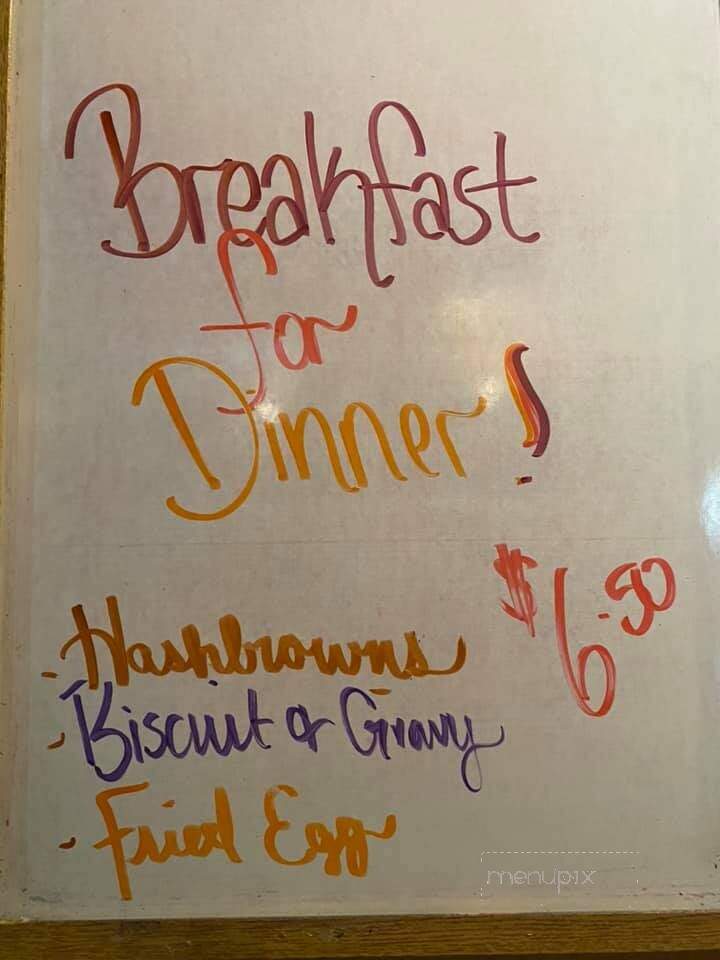 Breakfast
for
Dinner!
$6.50
- Hashbrowns
- Biscuit & Gravy
- Fried Egg
menupix